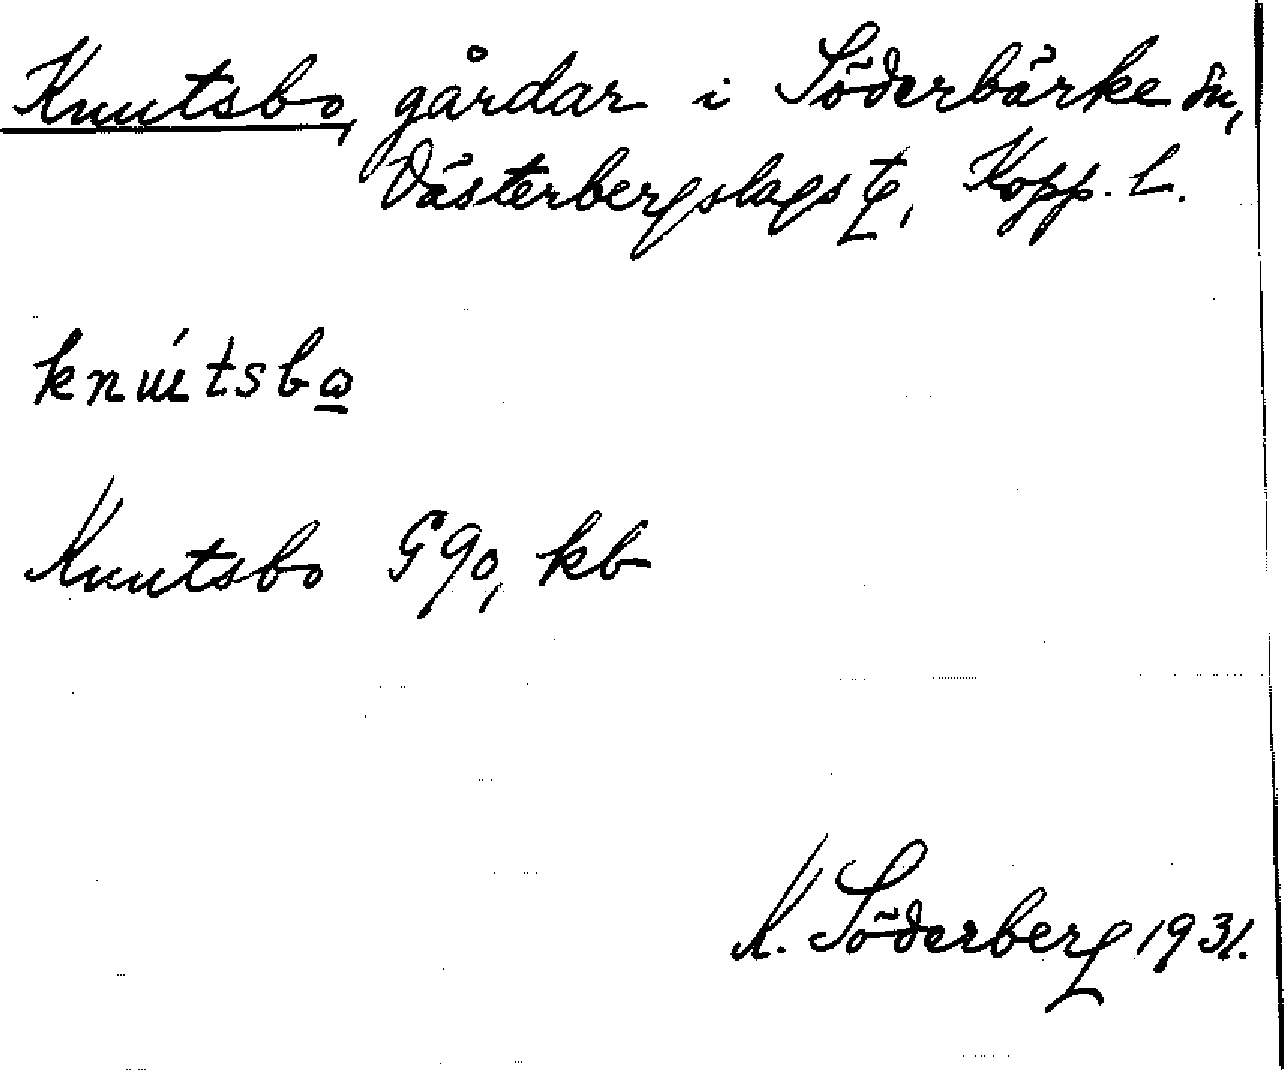 Knutsbo, gårdar i Söderbärke sn,
Västerbergslags tg, Kopp. L.
knútsbo
Knutsbo G90, kb
K. Söderberg 1931.